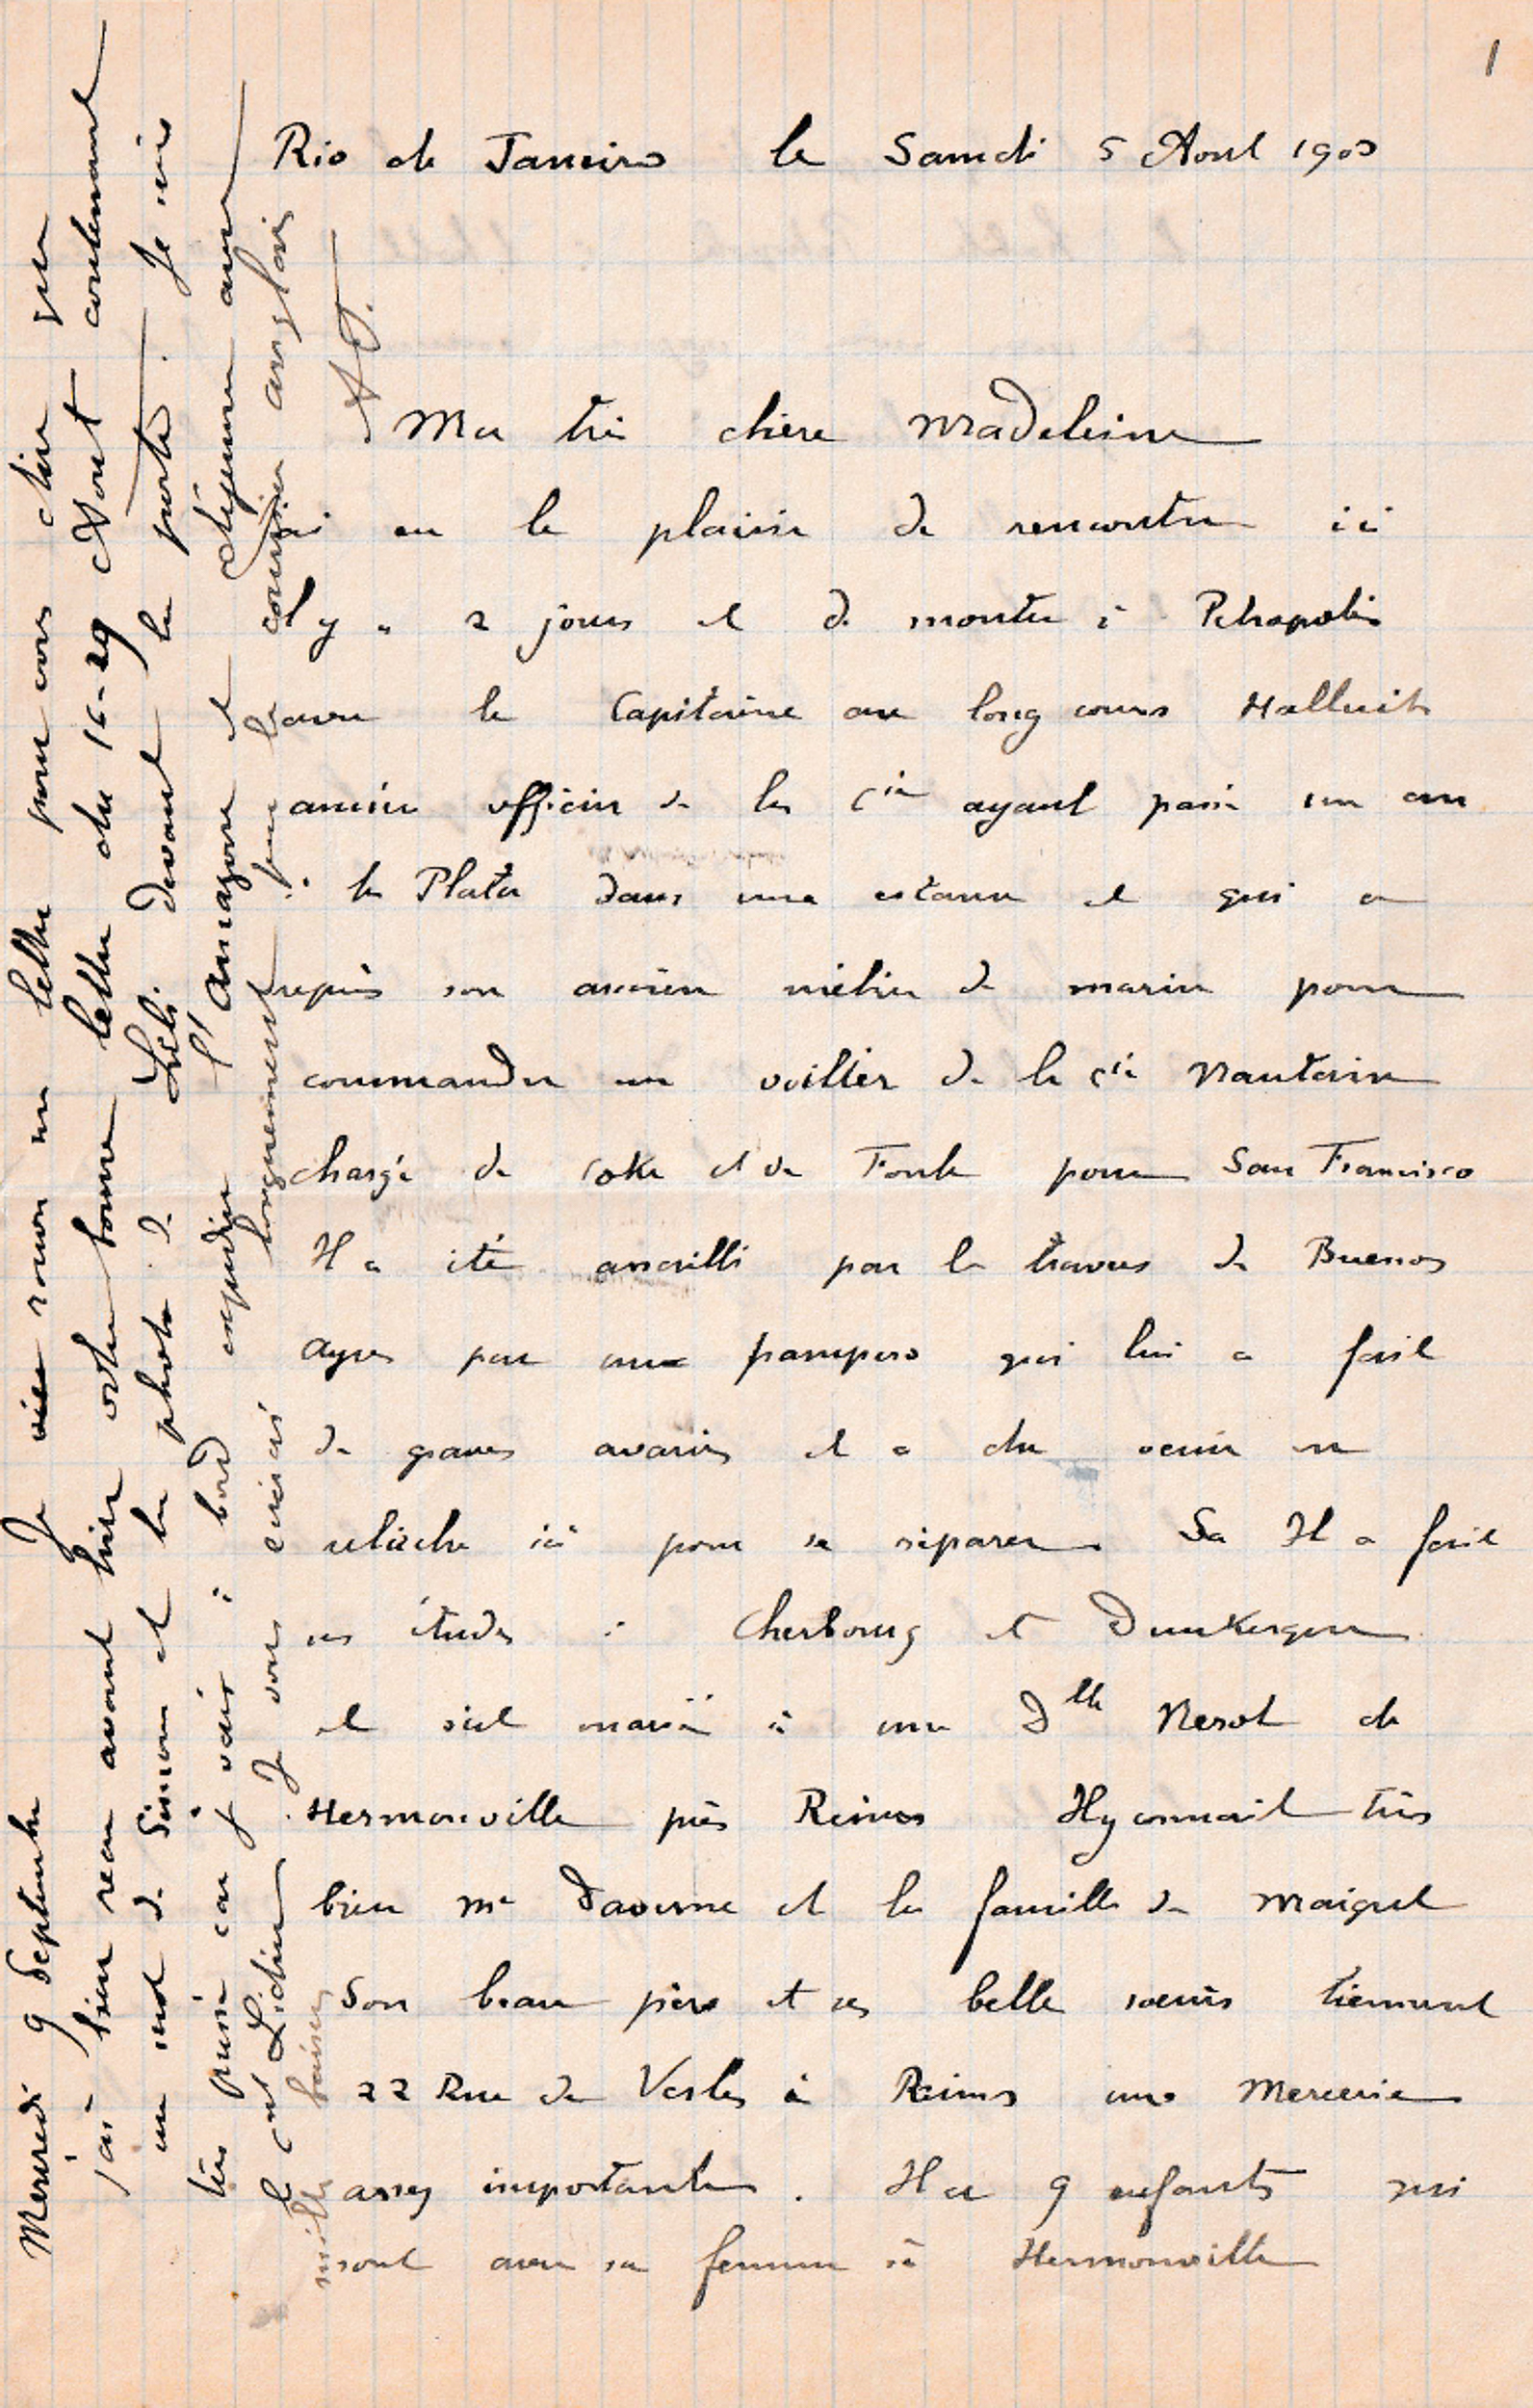 1
Rio de Janeiro le Samedi 5 Aout 1903
Ma très chère Madeleine
J'ai eu le plaisir de rencontrer ici
il y a 2 jours et de monter à Petropolis
avec le Capitaine au long cours Halluit
ancien officier de la Cie ayant passé un an
à la Plata dans une estance et qui a
repris son ancien métier de marin pour
commander un voilier de la Cie Nantaise
chargé de Coke et de Fonte pour San Francisco
Il a été assailli par le travers de Buenos
Ayres par une pampero qui lui a fait
de graves avaries et a du venir en
relâche ici pour se réparer. Sa Il a fait
ses études à Cherbourg et Dunkerque
et s'est marié à une Dlle Nerot de
Hermonville près Reims Il y connait très
bien Mr Daverne et la famille de Maigret
Son beau père et ses belle soeurs tiennent
22 Rue de Vesles à Reims une Mercerie
assez importante. Il a 9 enfants qui
sont avec sa femme à Hermonville
Mercredi 9 Septembre Je viens rouvrir ma lettre pour vous dire que
j'ai bien reçu avant hier votre bonne lettre du 16-29 Aout contenant
un mot de Simone et la photo de Lili devant la porte. Je suis
très pressé car je vais à bord expédier l'Amazone et déjeuner avec
le Cnt Lidin. Je vous écrirai longuement par le courrier anglais
mille baisers